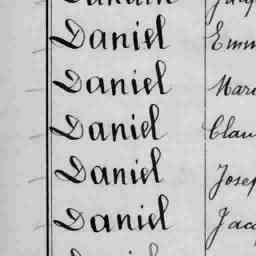 Daniel Emm
Daniel Mari
Daniel Clau
Daniel Josep
Daniel Jacq